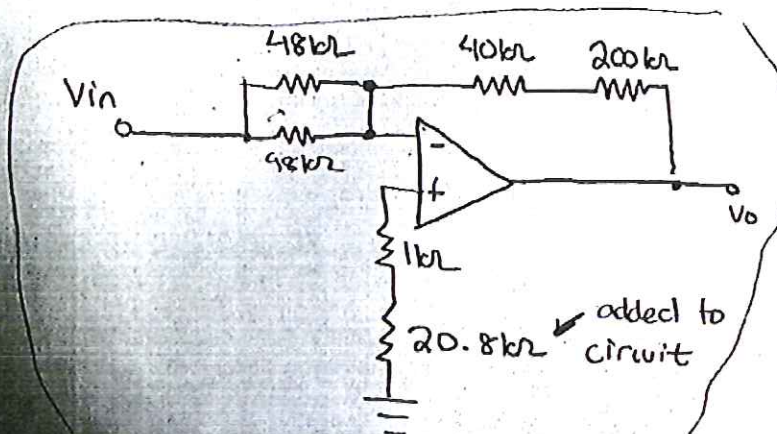 48kΩ 40kΩ 200kΩ
Vin
98kΩ
-
+
Vo
1kΩ
20.8kΩ added to
circuit